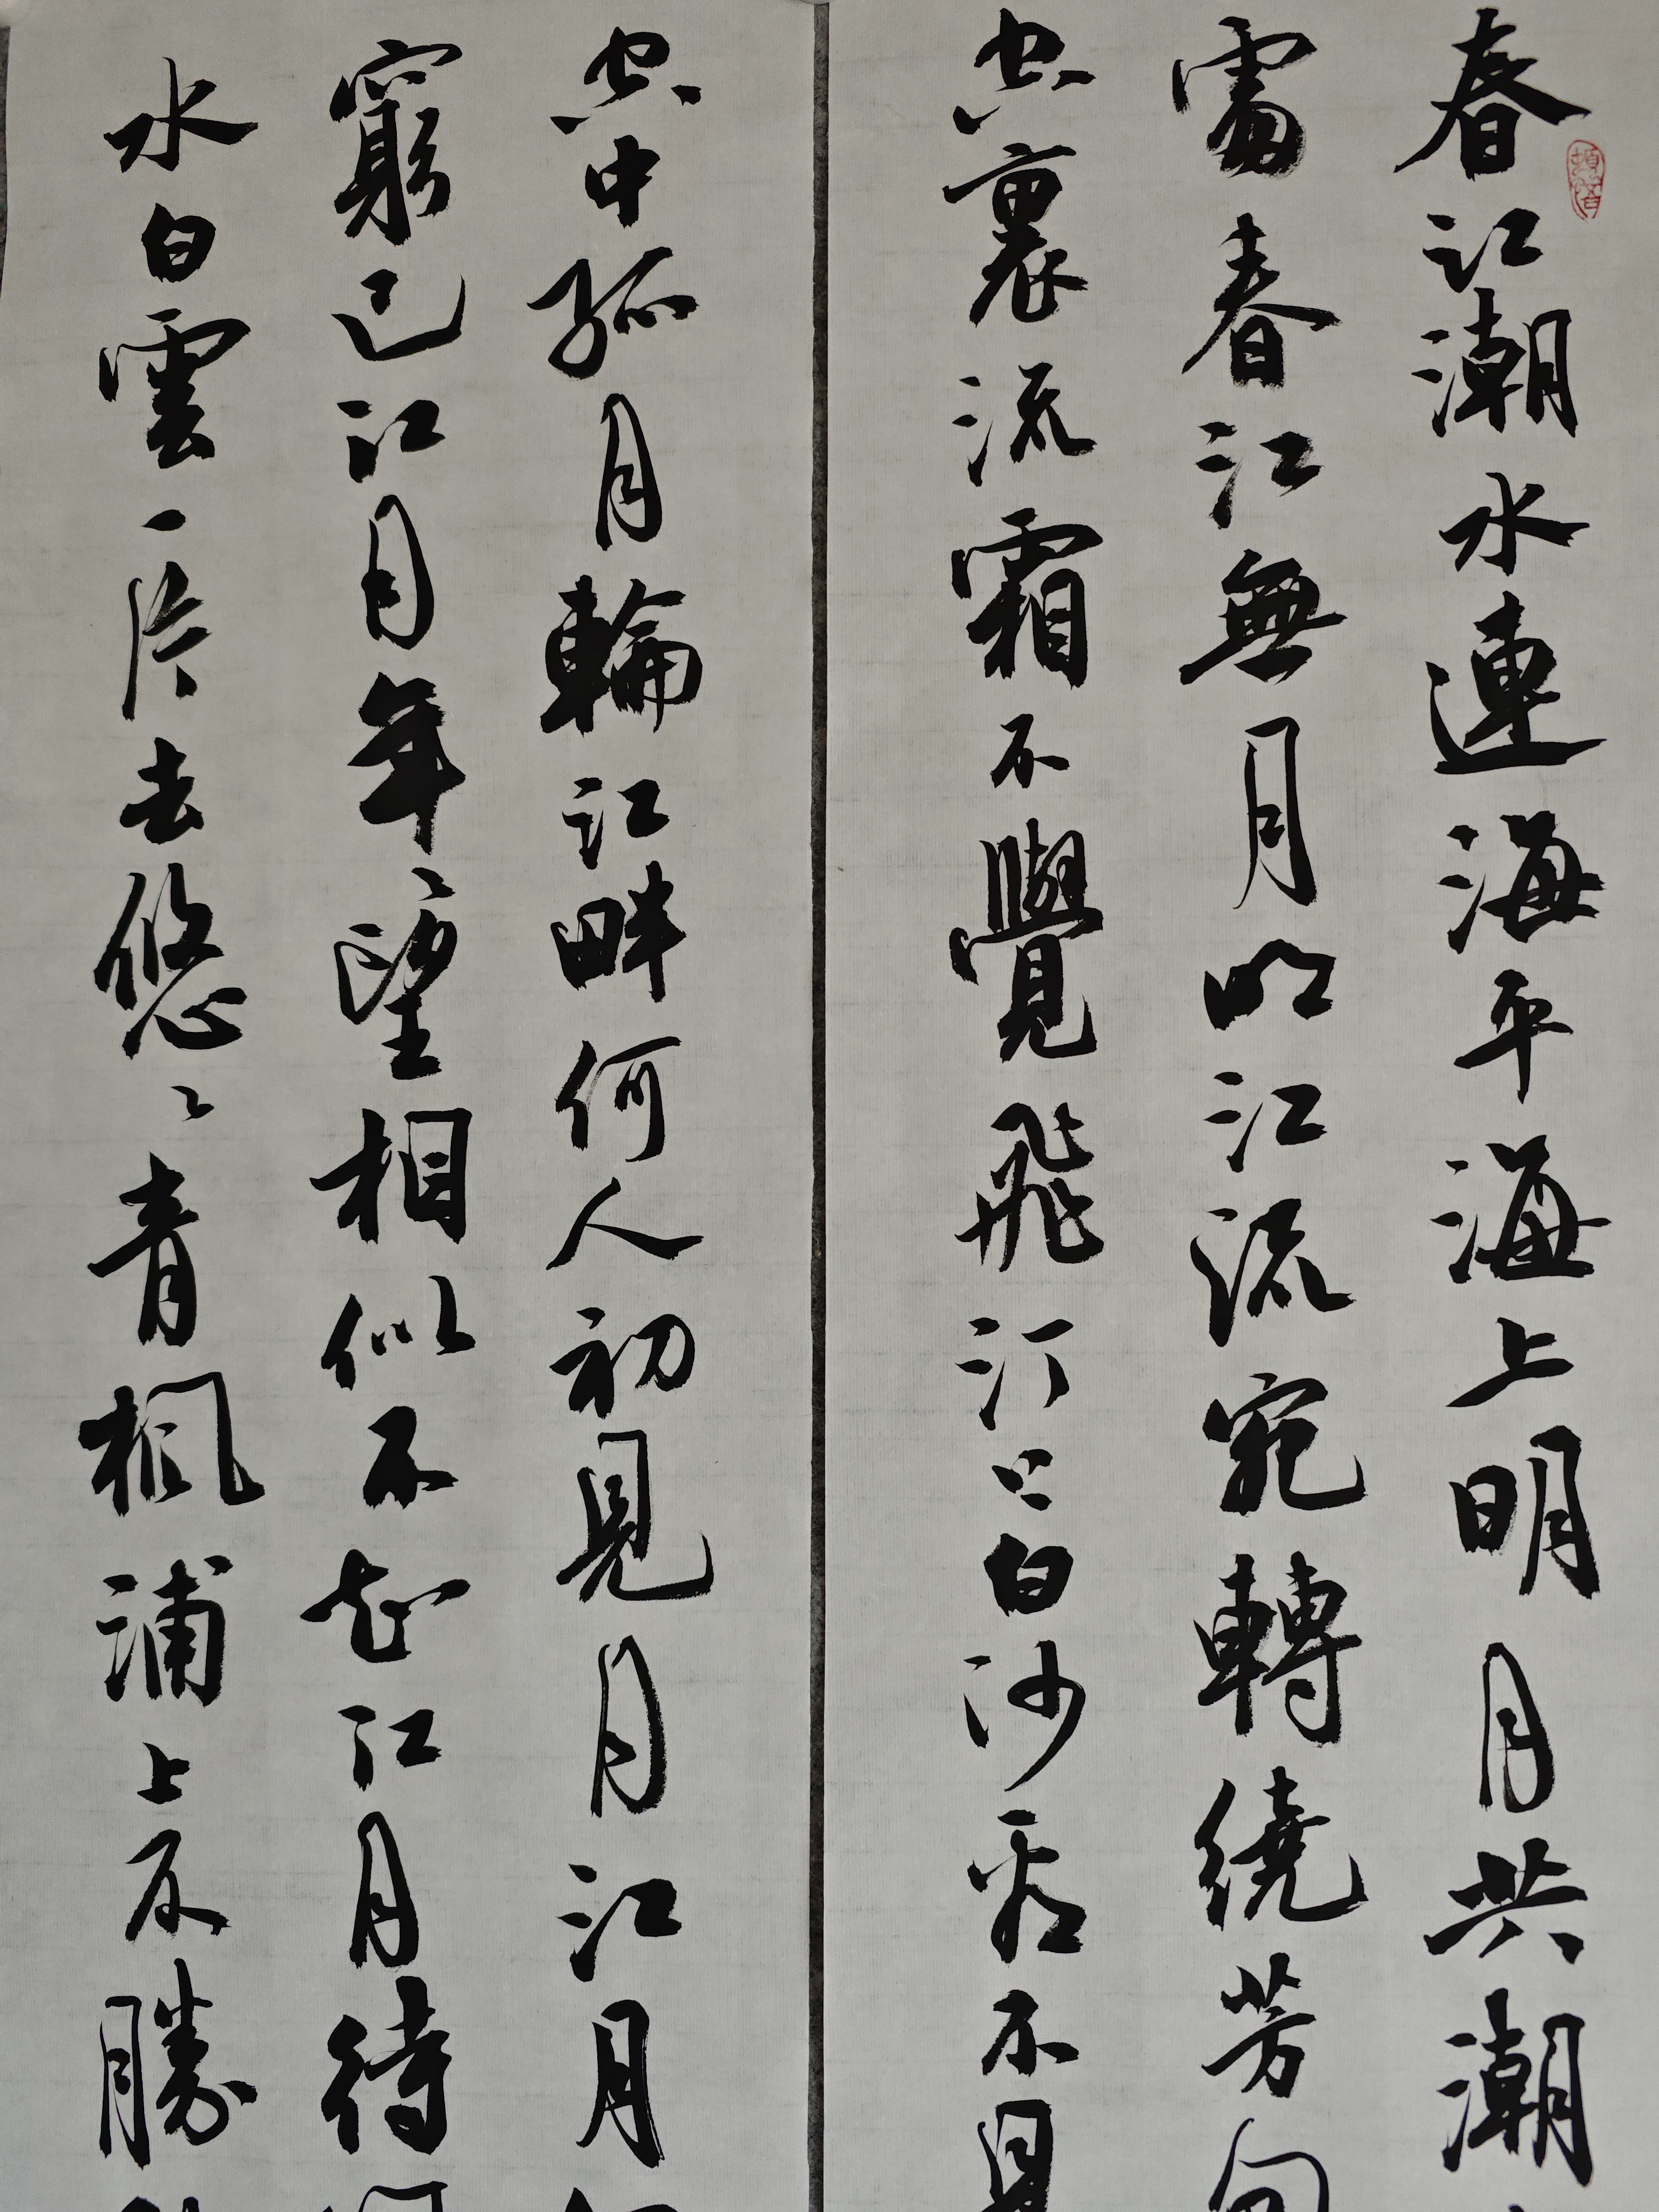 春江潮水連海平海上明月共潮
處春江無月明江流宛轉繞芳甸
空裏流霜不覺飛汀上白沙看不見
空中孤月輪江畔何人初見月江月
窮已江月年〻望相似不知江月待
水白雲一片去悠〻青楓浦上不勝